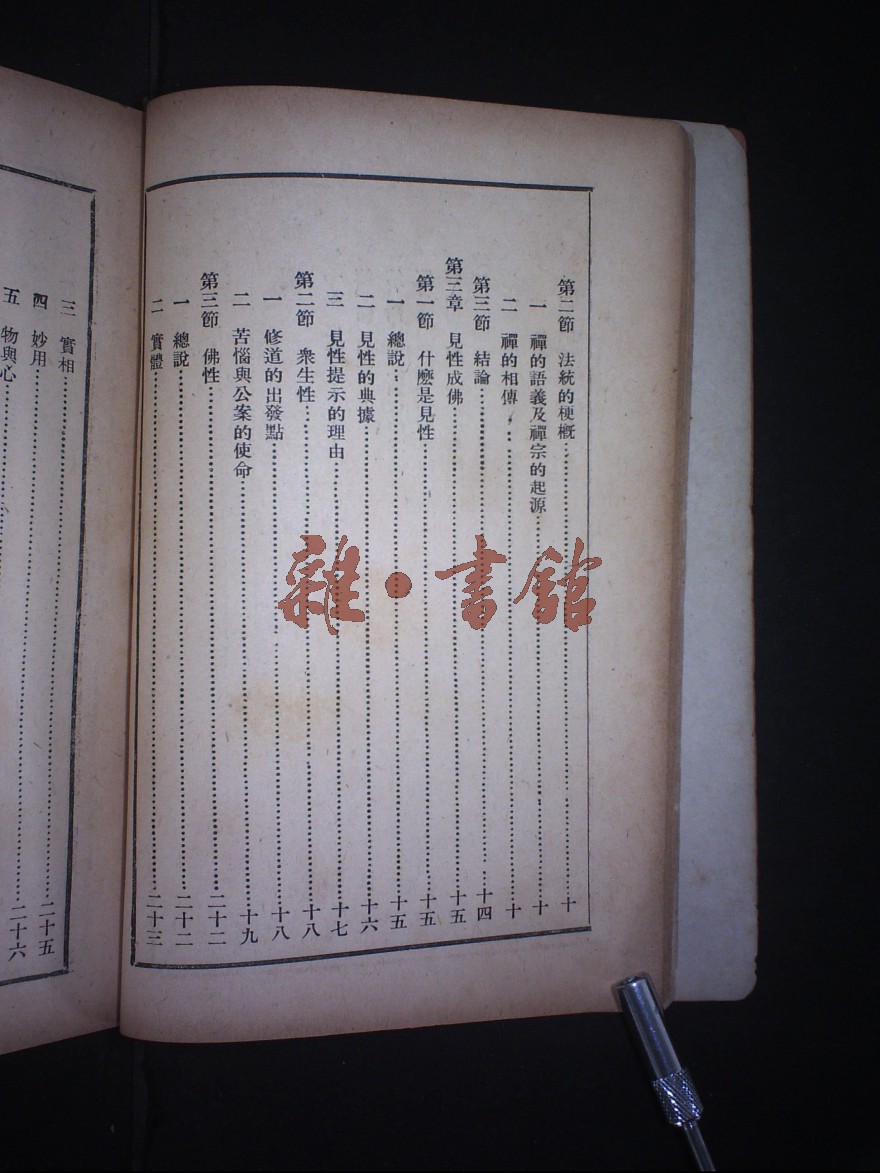 第二節 法統的梗概……十
一 禪的語義及禪宗的起源……十
二 禪的相傳……十
第三節 結論……十四
第三章 見性成佛……十五
第一節 什麽是見性……十五
一 總說……十五
二 見性的典據……十六
三 見性提示的理由……十七
第二節 衆生性……十八
一 修道的出發點……十八
二 苦惱與公案的使命……十九
第三節 佛性……二十二
一 總說……二十二
二 實體……二十三
三 實相……
四 妙用……二十五
五 物與心……二十六
雜·書館